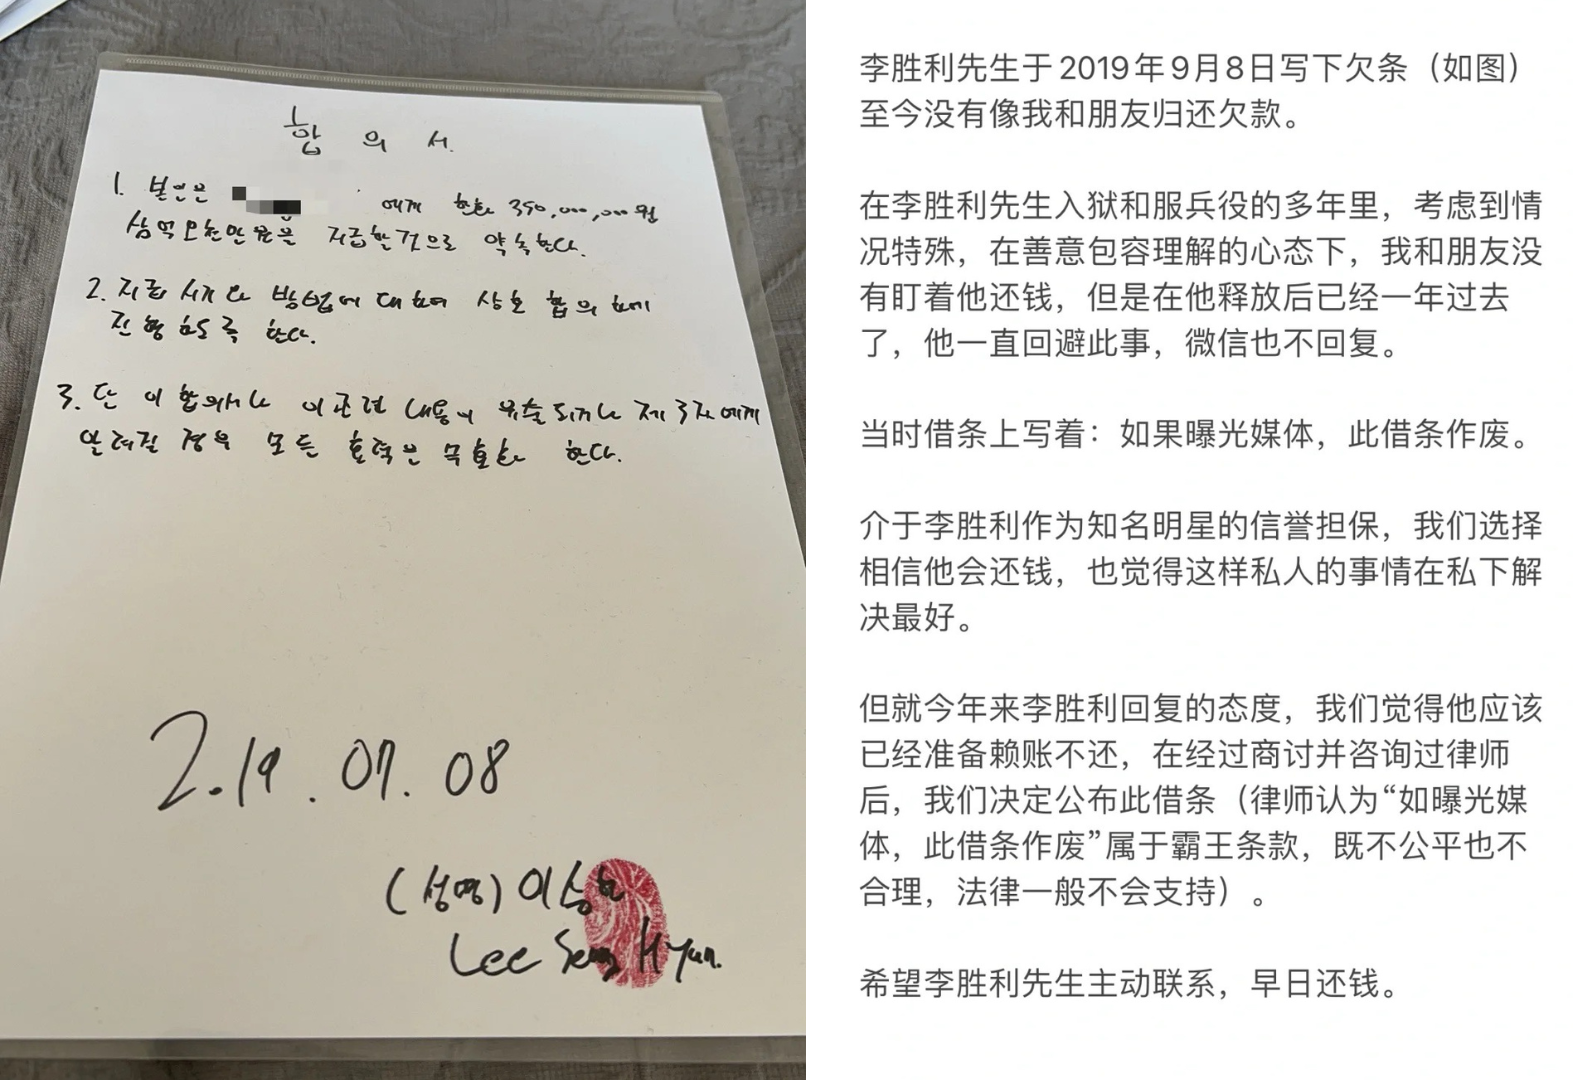 합 의 서.
1. 본인은 에게 한화 350,000,000원
삼억오천만원을 지급할것으로 약속한다.
2. 지급 시기와 방법에 대하여 상호 합의하에
진행하도록 한다.
3. 단 이 합의서나 이 관련 내용이 유출되거나 제3자에게
알려질 경우 모든 효력은 무효화 한다.
2.19.07.08
(성명) 이승현
Lee Seung Hyun.
李胜利先生于2019年9月8日写下欠条（如图）
至今没有像我和朋友归还欠款。
在李胜利先生入狱和服兵役的多年里，考虑到情
况特殊，在善意包容理解的心态下，我和朋友没
有盯着他还钱，但是在他释放后已经一年过去
了，他一直回避此事，微信也不回复。
当时借条上写着：如果曝光媒体，此借条作废。
介于李胜利作为知名明星的信誉担保，我们选择
相信他会还钱，也觉得这样私人的事情在私下解
决最好。
但就今年来李胜利回复的态度，我们觉得他应该
已经准备赖账不还，在经过商讨并咨询过律师
后，我们决定公布此借条（律师认为“如曝光媒
体，此借条作废”属于霸王条款，既不公平也不
合理，法律一般不会支持）。
希望李胜利先生主动联系，早日还钱。